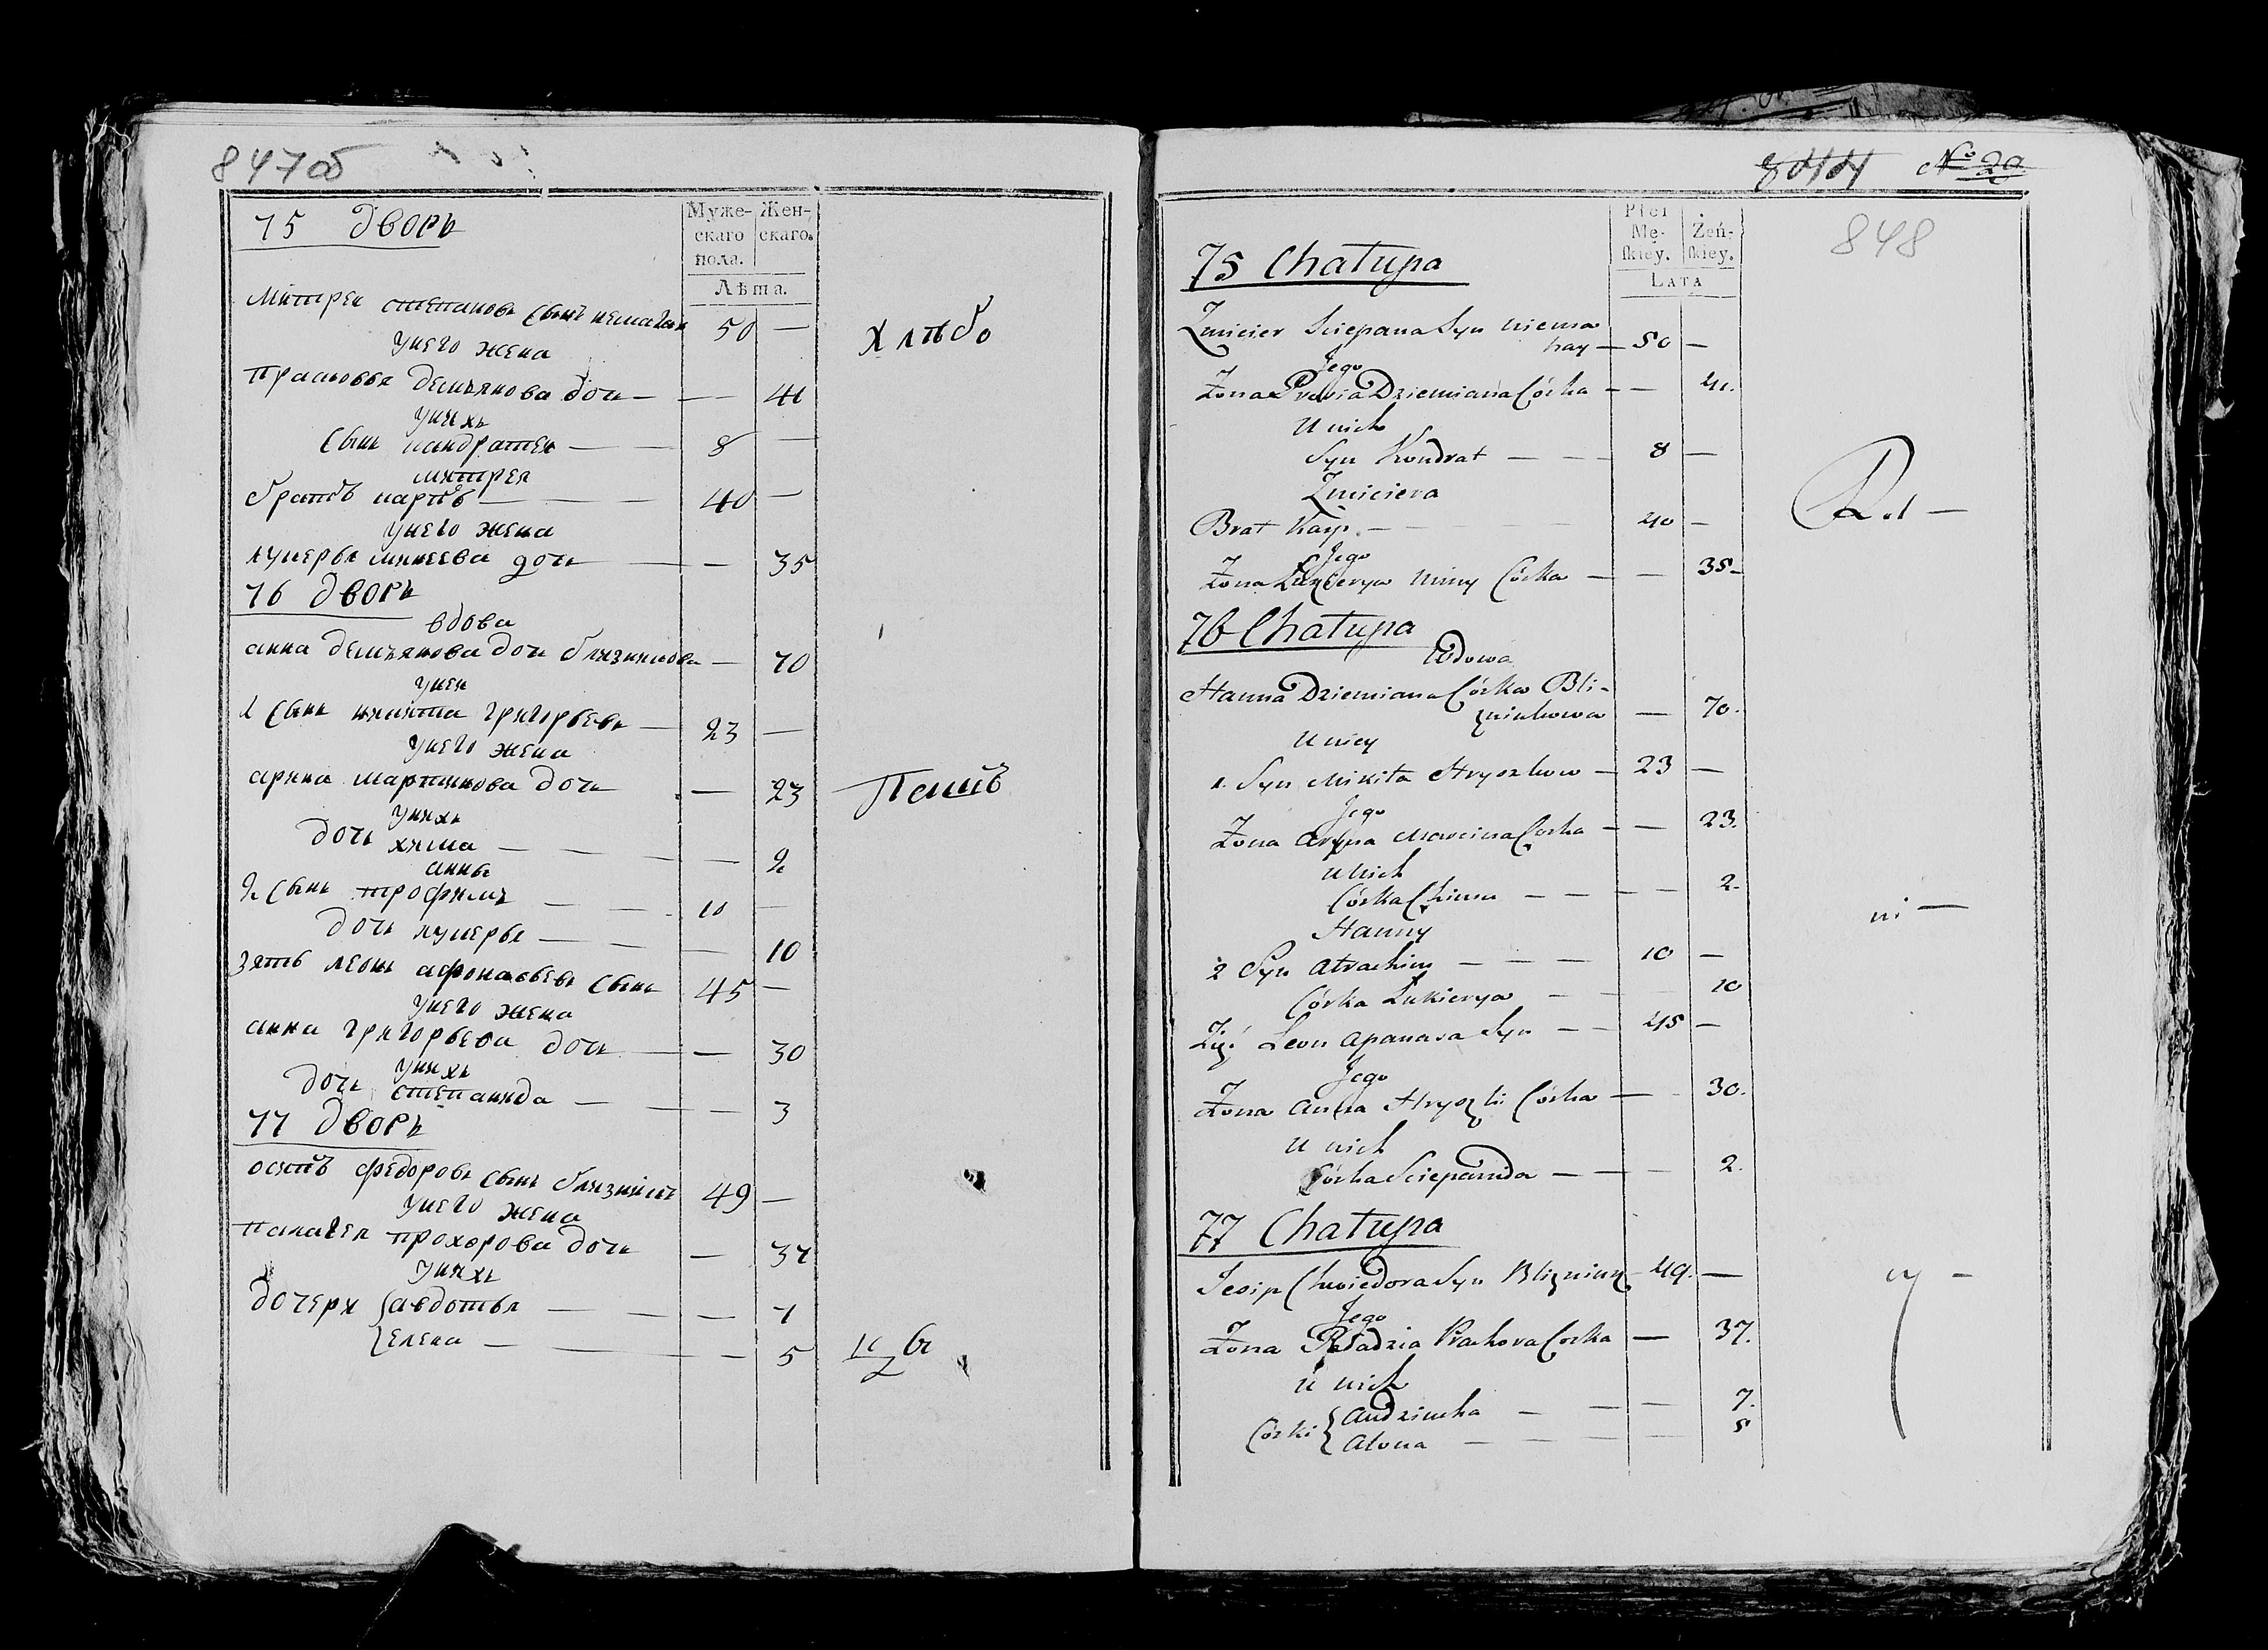 847об
75 дворъ
Муже-
скаго
пола.
Жен-
скаго.
Лѣта.
митрей степановъ сынъ немагай 50 —
у него жена
прасковья демьянова дочь — — 41
у нихъ
сынъ кандратей — 8 —
митрея
братъ карпъ — 40 —
у него жена
лукерья минеева дочь — — 35
76 дворъ
вдова
анна демьянова дочь близнюкова — 70
у неи
1 сынъ никита григорьевъ — 23 —
у него жена
арина мартинова дочь — 23
у нихъ
дочь хима — — 2
анны
2 сынъ трофимъ — 10 —
дочь лукерья — — 10
зять леонъ афонасьевъ сынъ 45 —
у него жена
анна григорьева дочь — — 30
у нихъ
дочь степанида — — 3
77 дворъ
осипъ федоровъ сынъ близнюкъ 49 —
у него жена
палагея прохорова дочь — 37
у нихъ
дочери { авдотья — — 7
{ елена — — 5
хлѣбо
Пашъ
8414 № 20
848
Płci
Mę-
ſkiey.
Żeń-
ſkiey.
LATA
75 Chałupa
Zmicier Sciepana Syn Niema
hay — 50 —
Jego
Żona Prosia Dziemiana Córka — — 41.
U nich
Syn Kondrat — — 8 —
Zmiciera
Brat Karp — 40 —
Jego
Żona Łukierya Miny Córka — — 35 —
76 Chałupa
Wdowa
Hanna Dziemiana Córka Bli-
zniukowa — 70.
U niey
1. Syn Mikita Hryszkow — 23 —
Jego
Żona Aryna Marcina Corka — — 23.
U nich
Córka Chima — — — — 2.
Hanny
2 Syn Atrachim — — — 10 —
Córka Łukierya — — 10
Zięć Leon Apanasa Syn — — 45 —
Jego
Żona Anna Hryszki Córka — — 30.
U nich
Córka Sciepanida — — — 2.
77 Chałupa
Josip Chwiedora Syn Blizniuk — 49. —
Jego
Żona Paładzia Prachora Corka — 37.
U nich
Córki { Audziucha — — — 7.
{ Alona — — — 5